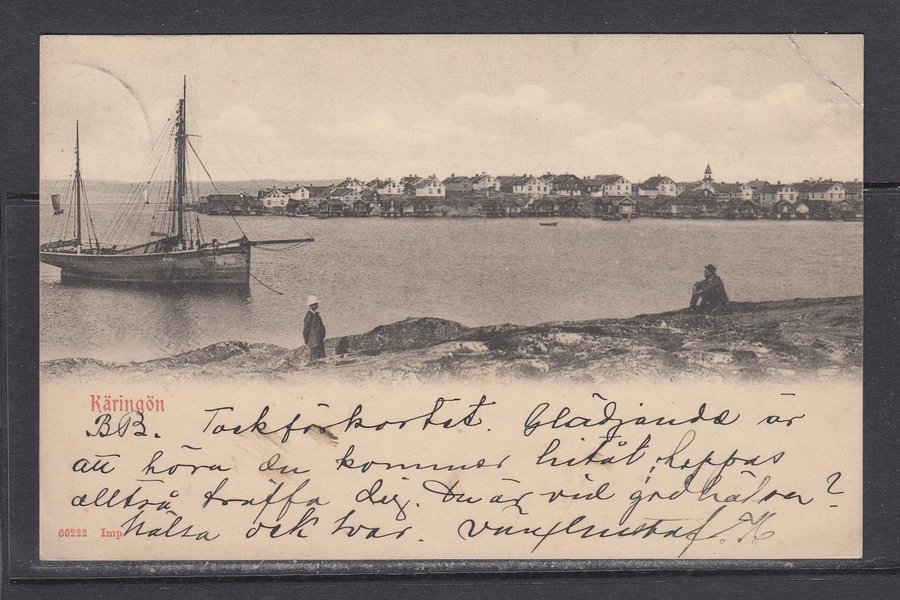 Käringön
BB. Tack för kortet. Glädjande är
att höra du kommer hitåt, hoppas
alltså träffa dig. Du är vid god hälsa?
60222 Imp Hälsa ock svar. Gustaf H